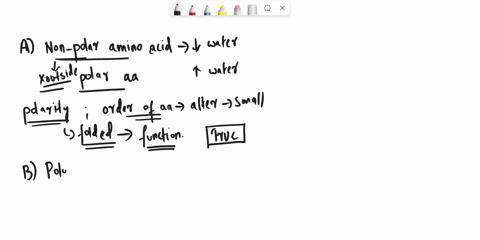 A) Non-polar amino acid → ↓ water
xoutside polar aa ↑ water
polarity ; order of aa → alter → small
↳ folded → function. true
B) Polu